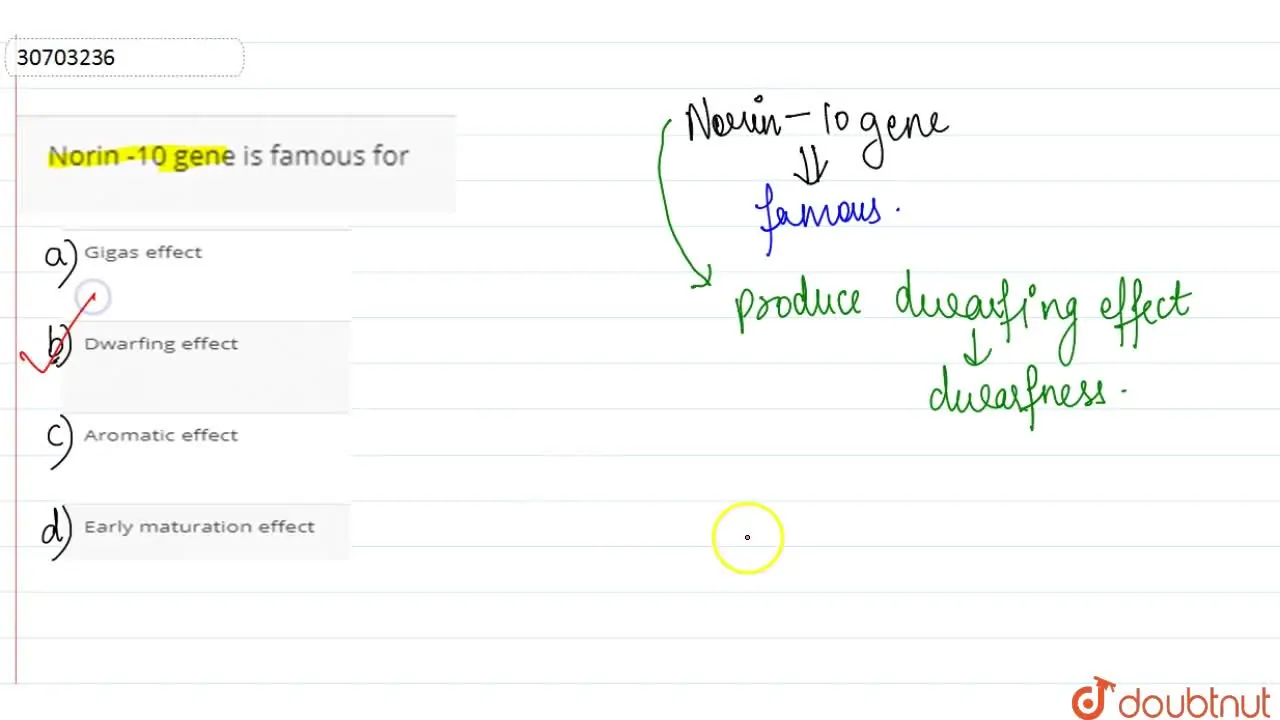 30703236
Norin -10 gene is famous for
a) Gigas effect
b) Dwarfing effect
c) Aromatic effect
d) Early maturation effect
Norin-10 gene
famous.
produce dwarfing effect
dwarfness.
doubtnut